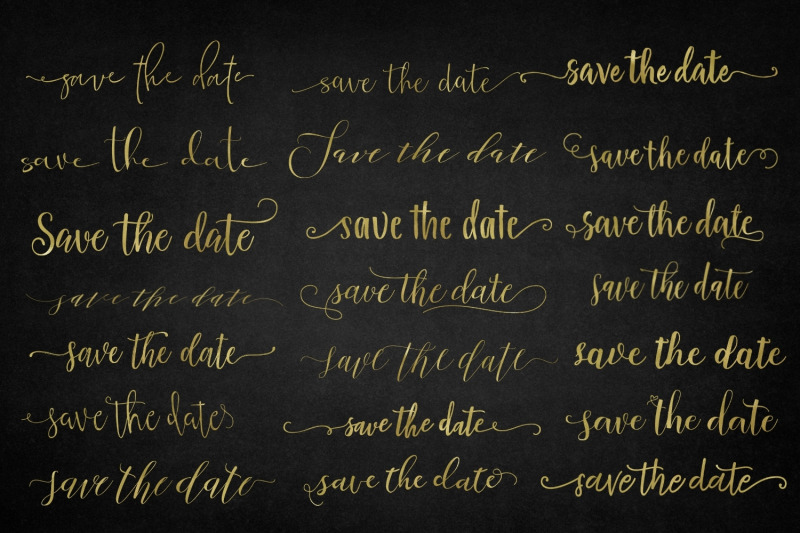 save the date save the date save the date
save the date Save the date save the date
Save the date save the date save the date
save the date save the date save the date
save the date save the date save the date
save the date save the date save the date
save the date save the date save the date